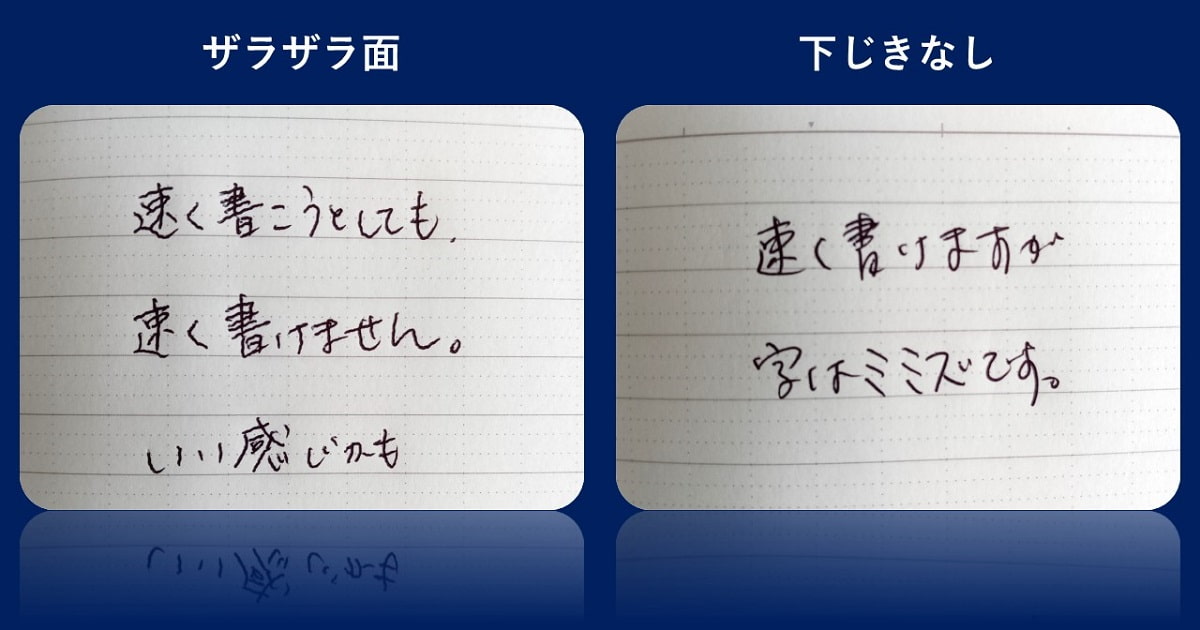 ザラザラ面
速く書こうとしても、
速く書けません。
いい感じかも
下じきなし
速く書けますが
字はミミズです。